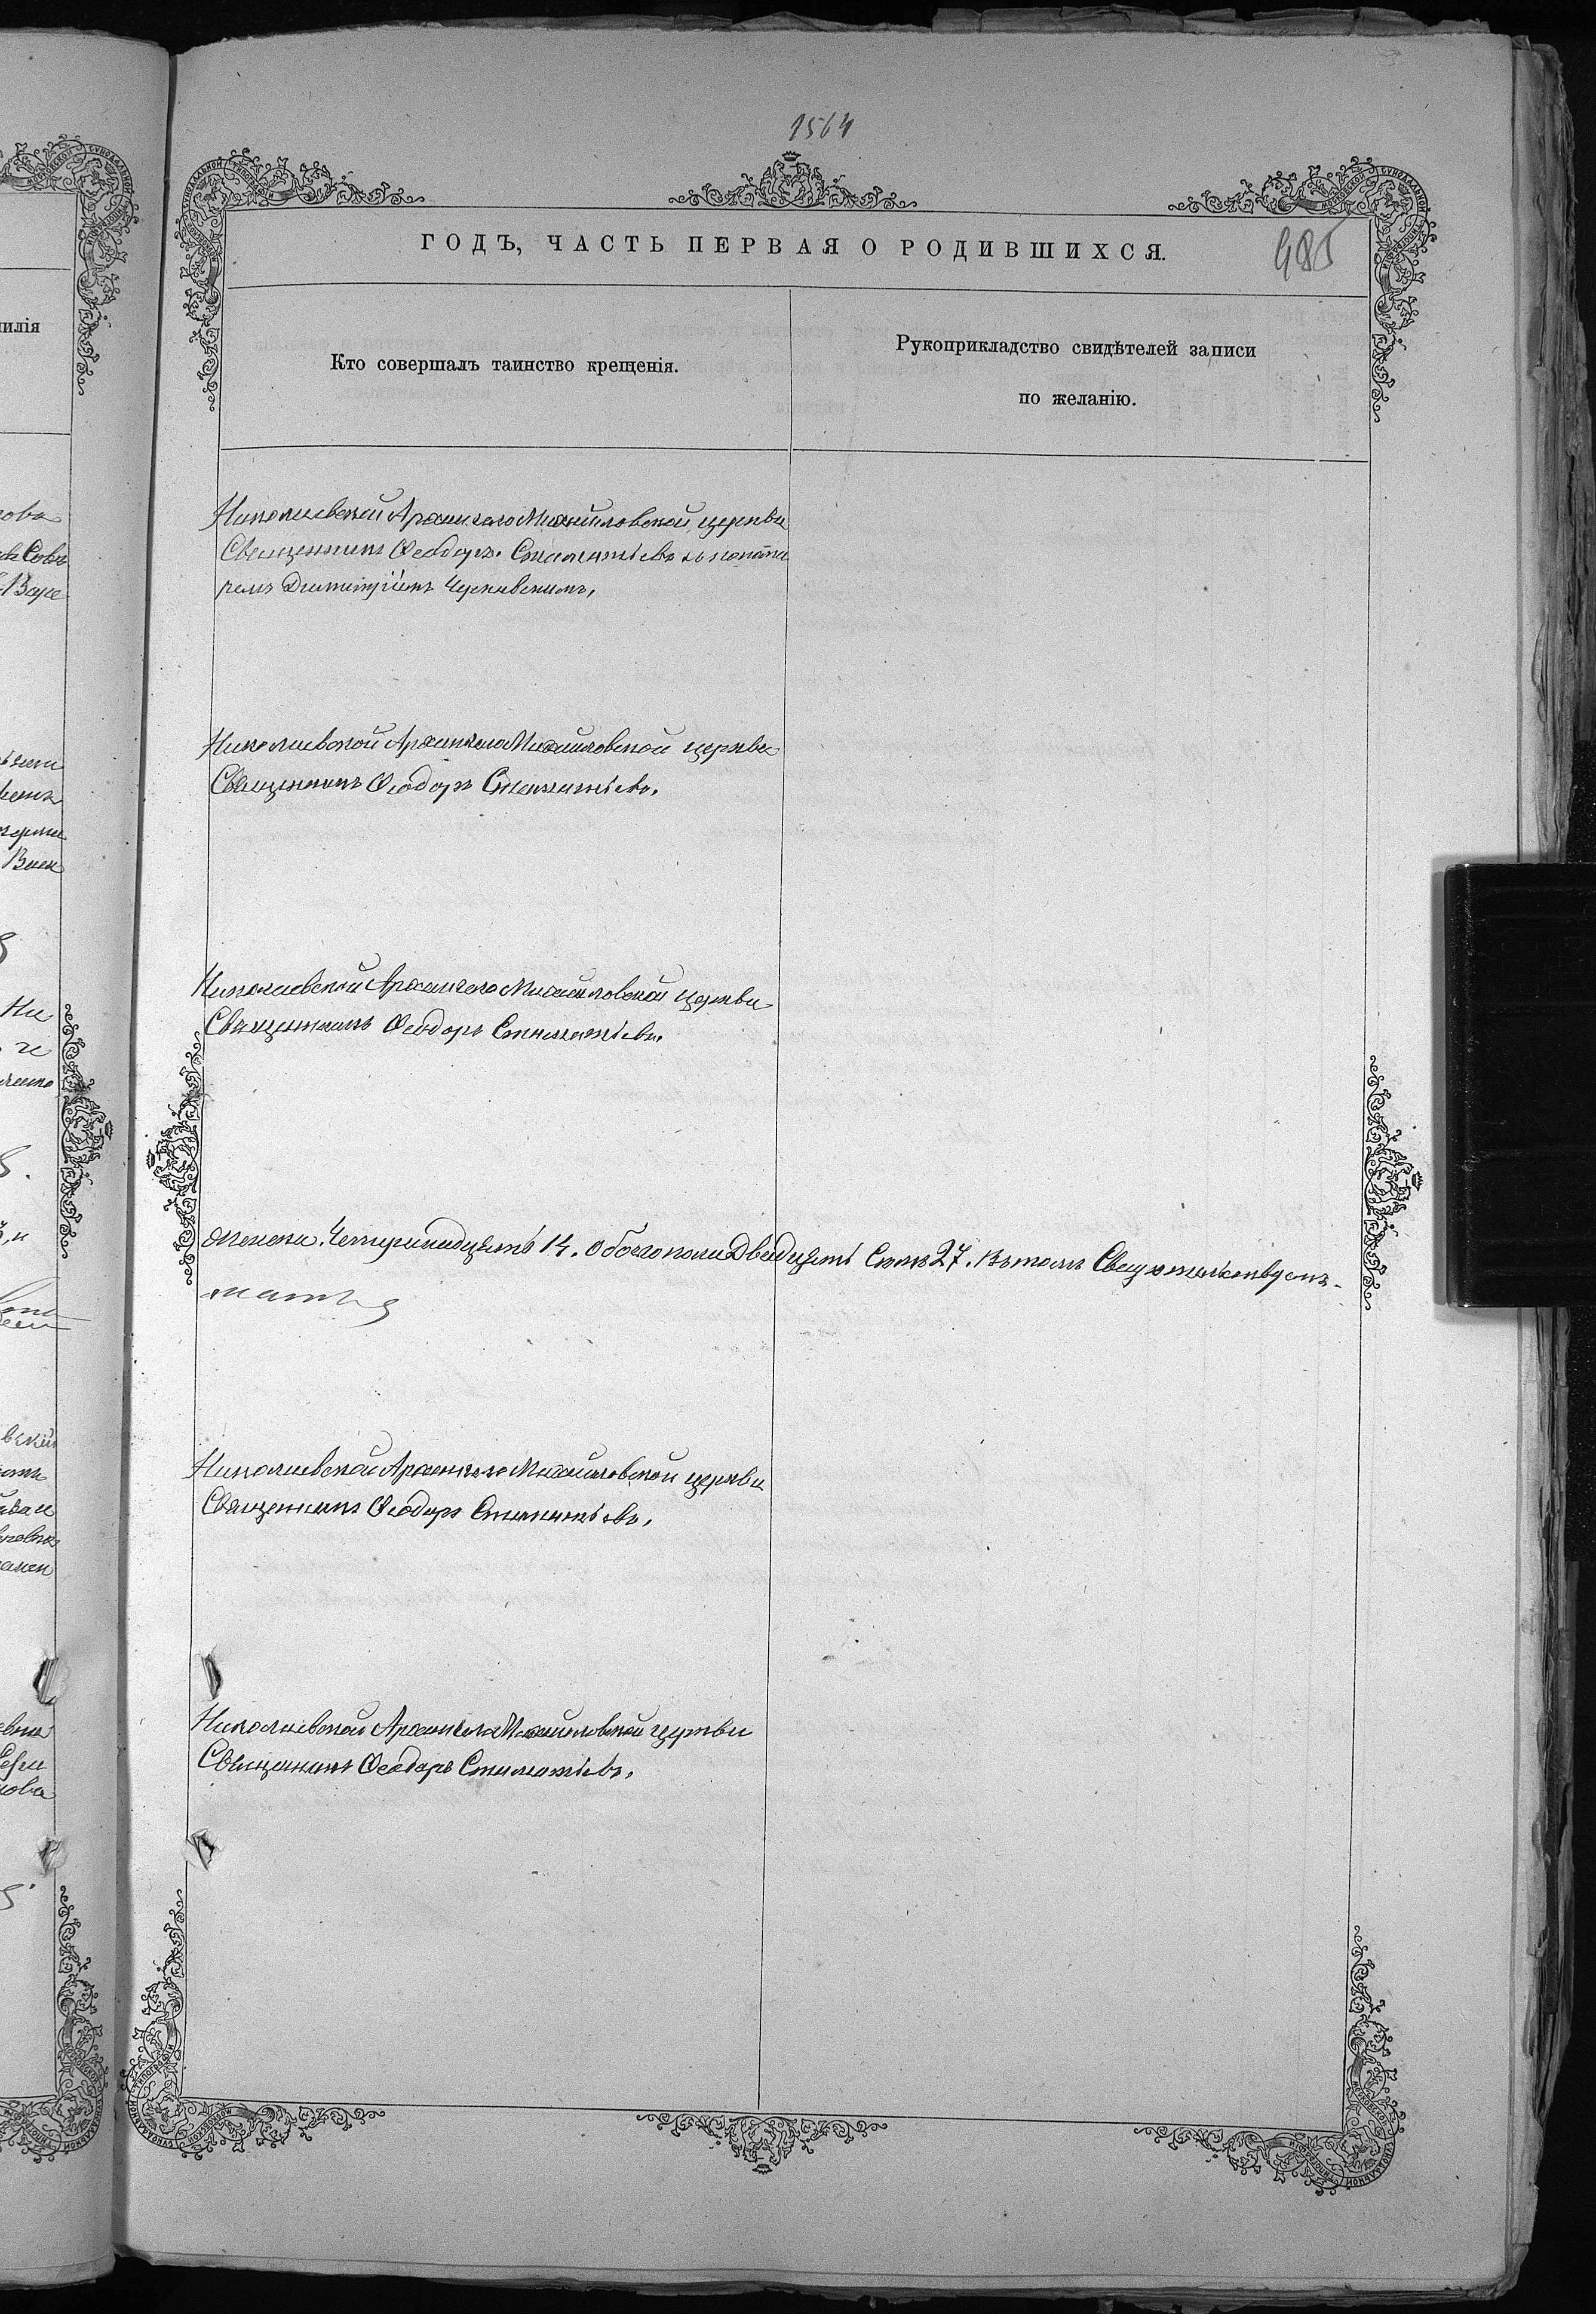 1564
ГОДЪ, ЧАСТЬ ПЕРВАЯ О РОДИВШИХСЯ.
485
илія
Кто совершалъ таинство крещенія.
Рукоприкладство свидѣтелей записи
по желанію.
Николаевской Архангело Михайловской церкви
Священникъ Ѳеодоръ Стаматіевъ съ псалта
ремъ Димитріемъ Чернявскимъ,
Николаевской Архангело Михайловской церкви
Священникъ Ѳеодоръ Стаматіевъ,
Николаевской Архангело Михайловской церкви
Священникъ Ѳеодоръ Стаматіевъ.
женска Четырнадцать 14. обоего пола Двадцать Семь 27. Въ томъ Свидѣтельствуемъ
Николаевской Архангело Михайловской церкви
Священникъ Ѳеодоръ Стаматіевъ,
Николаевской Архангело Михайловской церкви
Священникъ Ѳеодоръ Стаматіевъ,